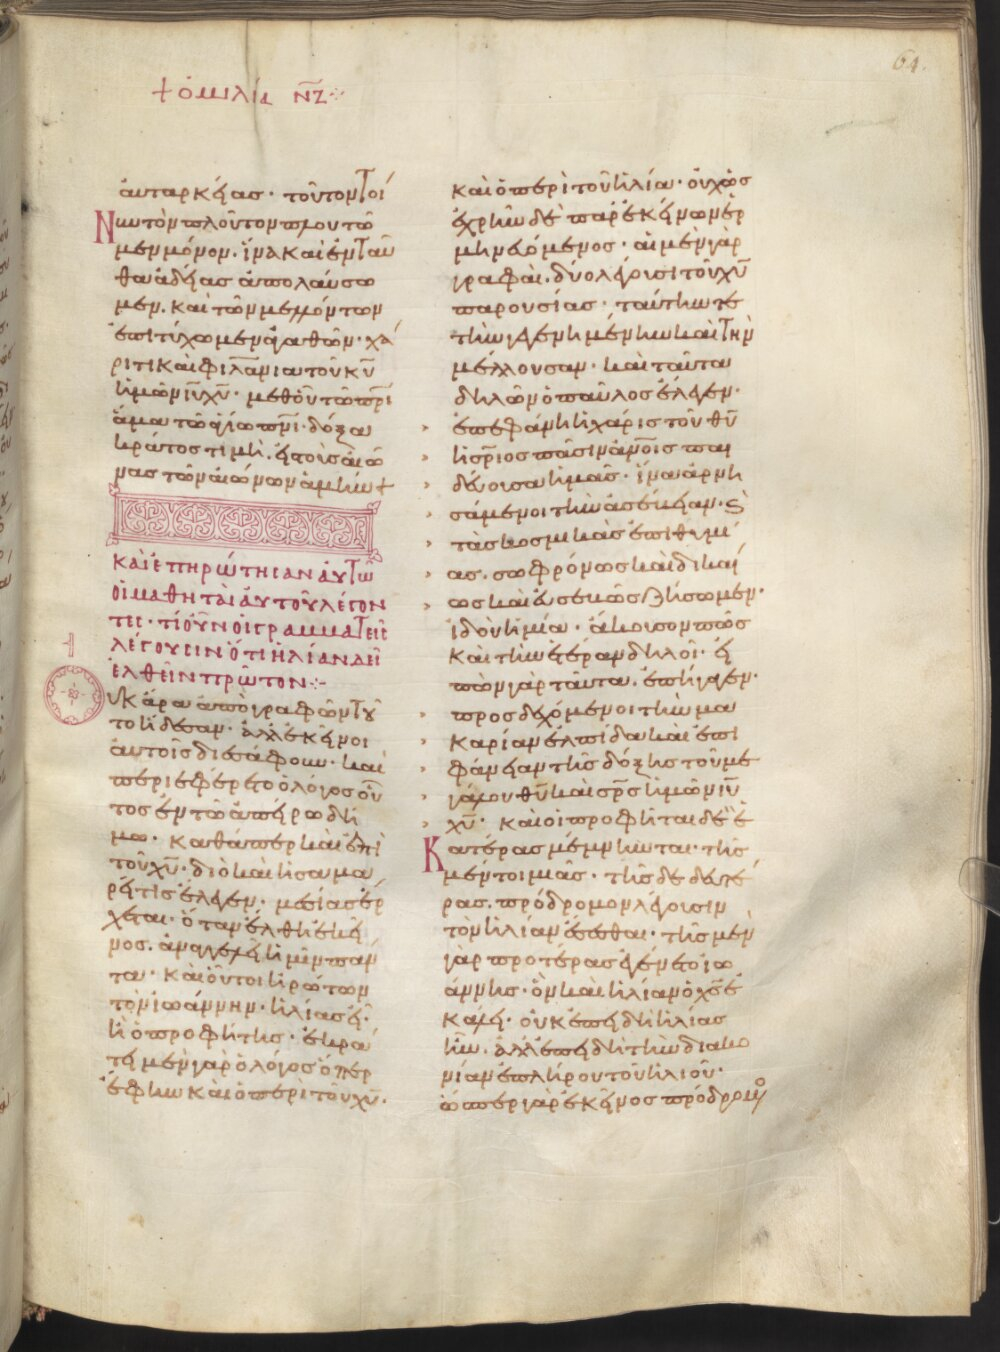 + ὁμιλία νζ
64.
αυταρκείας· τοῦτον τοί
Νυν τὸν πλοῦτον πλουτῶ
μεν μόνον. ἵνα καὶ ἐνταῦ
θα ἀδείας ἀπολαύσω
μεν. καὶ τῶν μελλόντων
ἐπιτύχωμεν ἀγαθῶν· χά
ριτι καὶ φιλανία τοῦ κυ
ἡμῶν ιυ χυ· μεθοὗ τῶ πρι
ἅμα τῶ ἁγίω πνι· δόξα
κράτος τιμὴ. εἰς τοὺς αἰῶ
νας τῶν αἰώνων ἀμήν +
ΚΑΙ ΕΠΗΡΩΤΗΣΑΝ ΑΥΤῶ
ΟΙ ΜΑΘΗΤΑΙ ΑΥΤΟΥ ΛΕΓΟΝ
ΤΕΣ· ΤΙ ΟΥΝ ΟΙ ΓΡΑΜΜΑΤΕΙΣ
ΛΕΓΟΥΣΙΝ ΟΤΙ ΗΛΙΑΝ ΔΕΙ
ΕΛΘΕΙΝ ΠΡΩΤΟΝ
Οὐκ ἄρα ἀπὸ γραφῶν τοῦ
το ἤδεσαν· ἀλλ ἐκεῖνοι
αὐτοῖς διεσάφουν· καὶ
περιεφέρετο ὁ λόγος οὗ
τος ἐν τῶ ἀπείρω δή
μω· καθάπερ καὶ ἐπὶ
τοῦ χυ· διὸ καὶ ἡ σαμα
ρεῖτις ἔλεγεν. μεσίας ἔρ
χεται· ὅταν ἔλθη ἐκεῖ
νος. ἀναγγελεῖ ἡμῖν πάν
τα· καὶ οὗτοι ἠρώτων
τὸν ἰωάννην. ἠλίας εἶ·
ἢ ὁ προφήτης· ἐκρά
τει μὲν γὰρ ὁ λόγος ὅπερ
ἔφην καὶ ὁ περὶ τοῦ χυ.
καὶ ὁ περὶ τοῦ ἠλία· οὐχ ὡς
ἐχρῆν δὲ παρ ἐκείνων ἑρ
μηνευόμενος· αἱ μὲν γὰρ
γραφαὶ. δύο λέγουσι τοῦ χυ
παρουσίας· ταύτην τε
τὴν γεγενημένην καὶ τὴν
μέλλουσαν· καὶ ταῦτα
δηλῶν ὁ παῦλος ἔλεγεν·
ἐπεφάνη ἡ χάρις τοῦ θυ
ἡ σριος πᾶσιν ανοις παι
δεύουσα ἡμᾶς· ἵνα ἀρνη
σάμενοι τὴν ἀσέβειαν· ϗ
τὰς κοσμικὰς ἐπιθυμί
ας. σωφρόνως καὶ δικαί
ως καὶ εὐσεβῶς ζήσωμεν·
ἰδοὺ ἡ μία· ἄκουσον πῶς
καὶ τὴν ἑτέραν δηλοῖ· εἰ
πὼν γὰρ ταῦτα. ἐπήγαγεν·
προσδεχόμενοι τὴν μα
καρίαν ἐλπίδα καὶ ἐπι
φάνειαν τῆς δόξης τοῦ με
γάλου θυ καὶ σρς ἡμῶν ιυ
χυ· καὶ οἱ προφῆται δὲ ἑ
Κατέρας μέμνηνται· τῆς
μέντοι μιᾶς· τῆς δευτέ
ρας. πρόδρομον λέγουσιν
τὸν ἠλίαν ἔσεσθαι· τῆς μὲν
γὰρ προτέρας ἐγένετο ἰω
άννης· ὃν καὶ ἠλίαν ὁ χς ἐ
κάλει· οὐκ ἐπειδὴ ἠλίας
ἦν. ἀλλ ἐπειδὴ τὴν διακο
νίαν ἐπλήρου τοῦ ἠλιοῦ·
ὥσπερ γὰρ ἐκεῖνος πρόδρομο